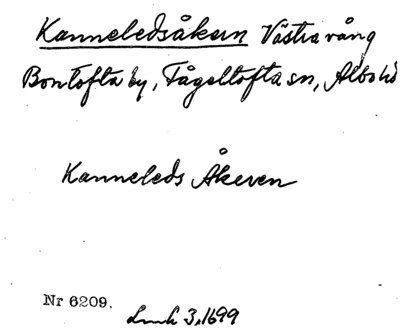 Kanneledsåkern Västra vång
Bontofta by, Fågeltofta sn, Albo hd
Kanneleds Åkeren
Nr 6209.
Lmk 3, 1699